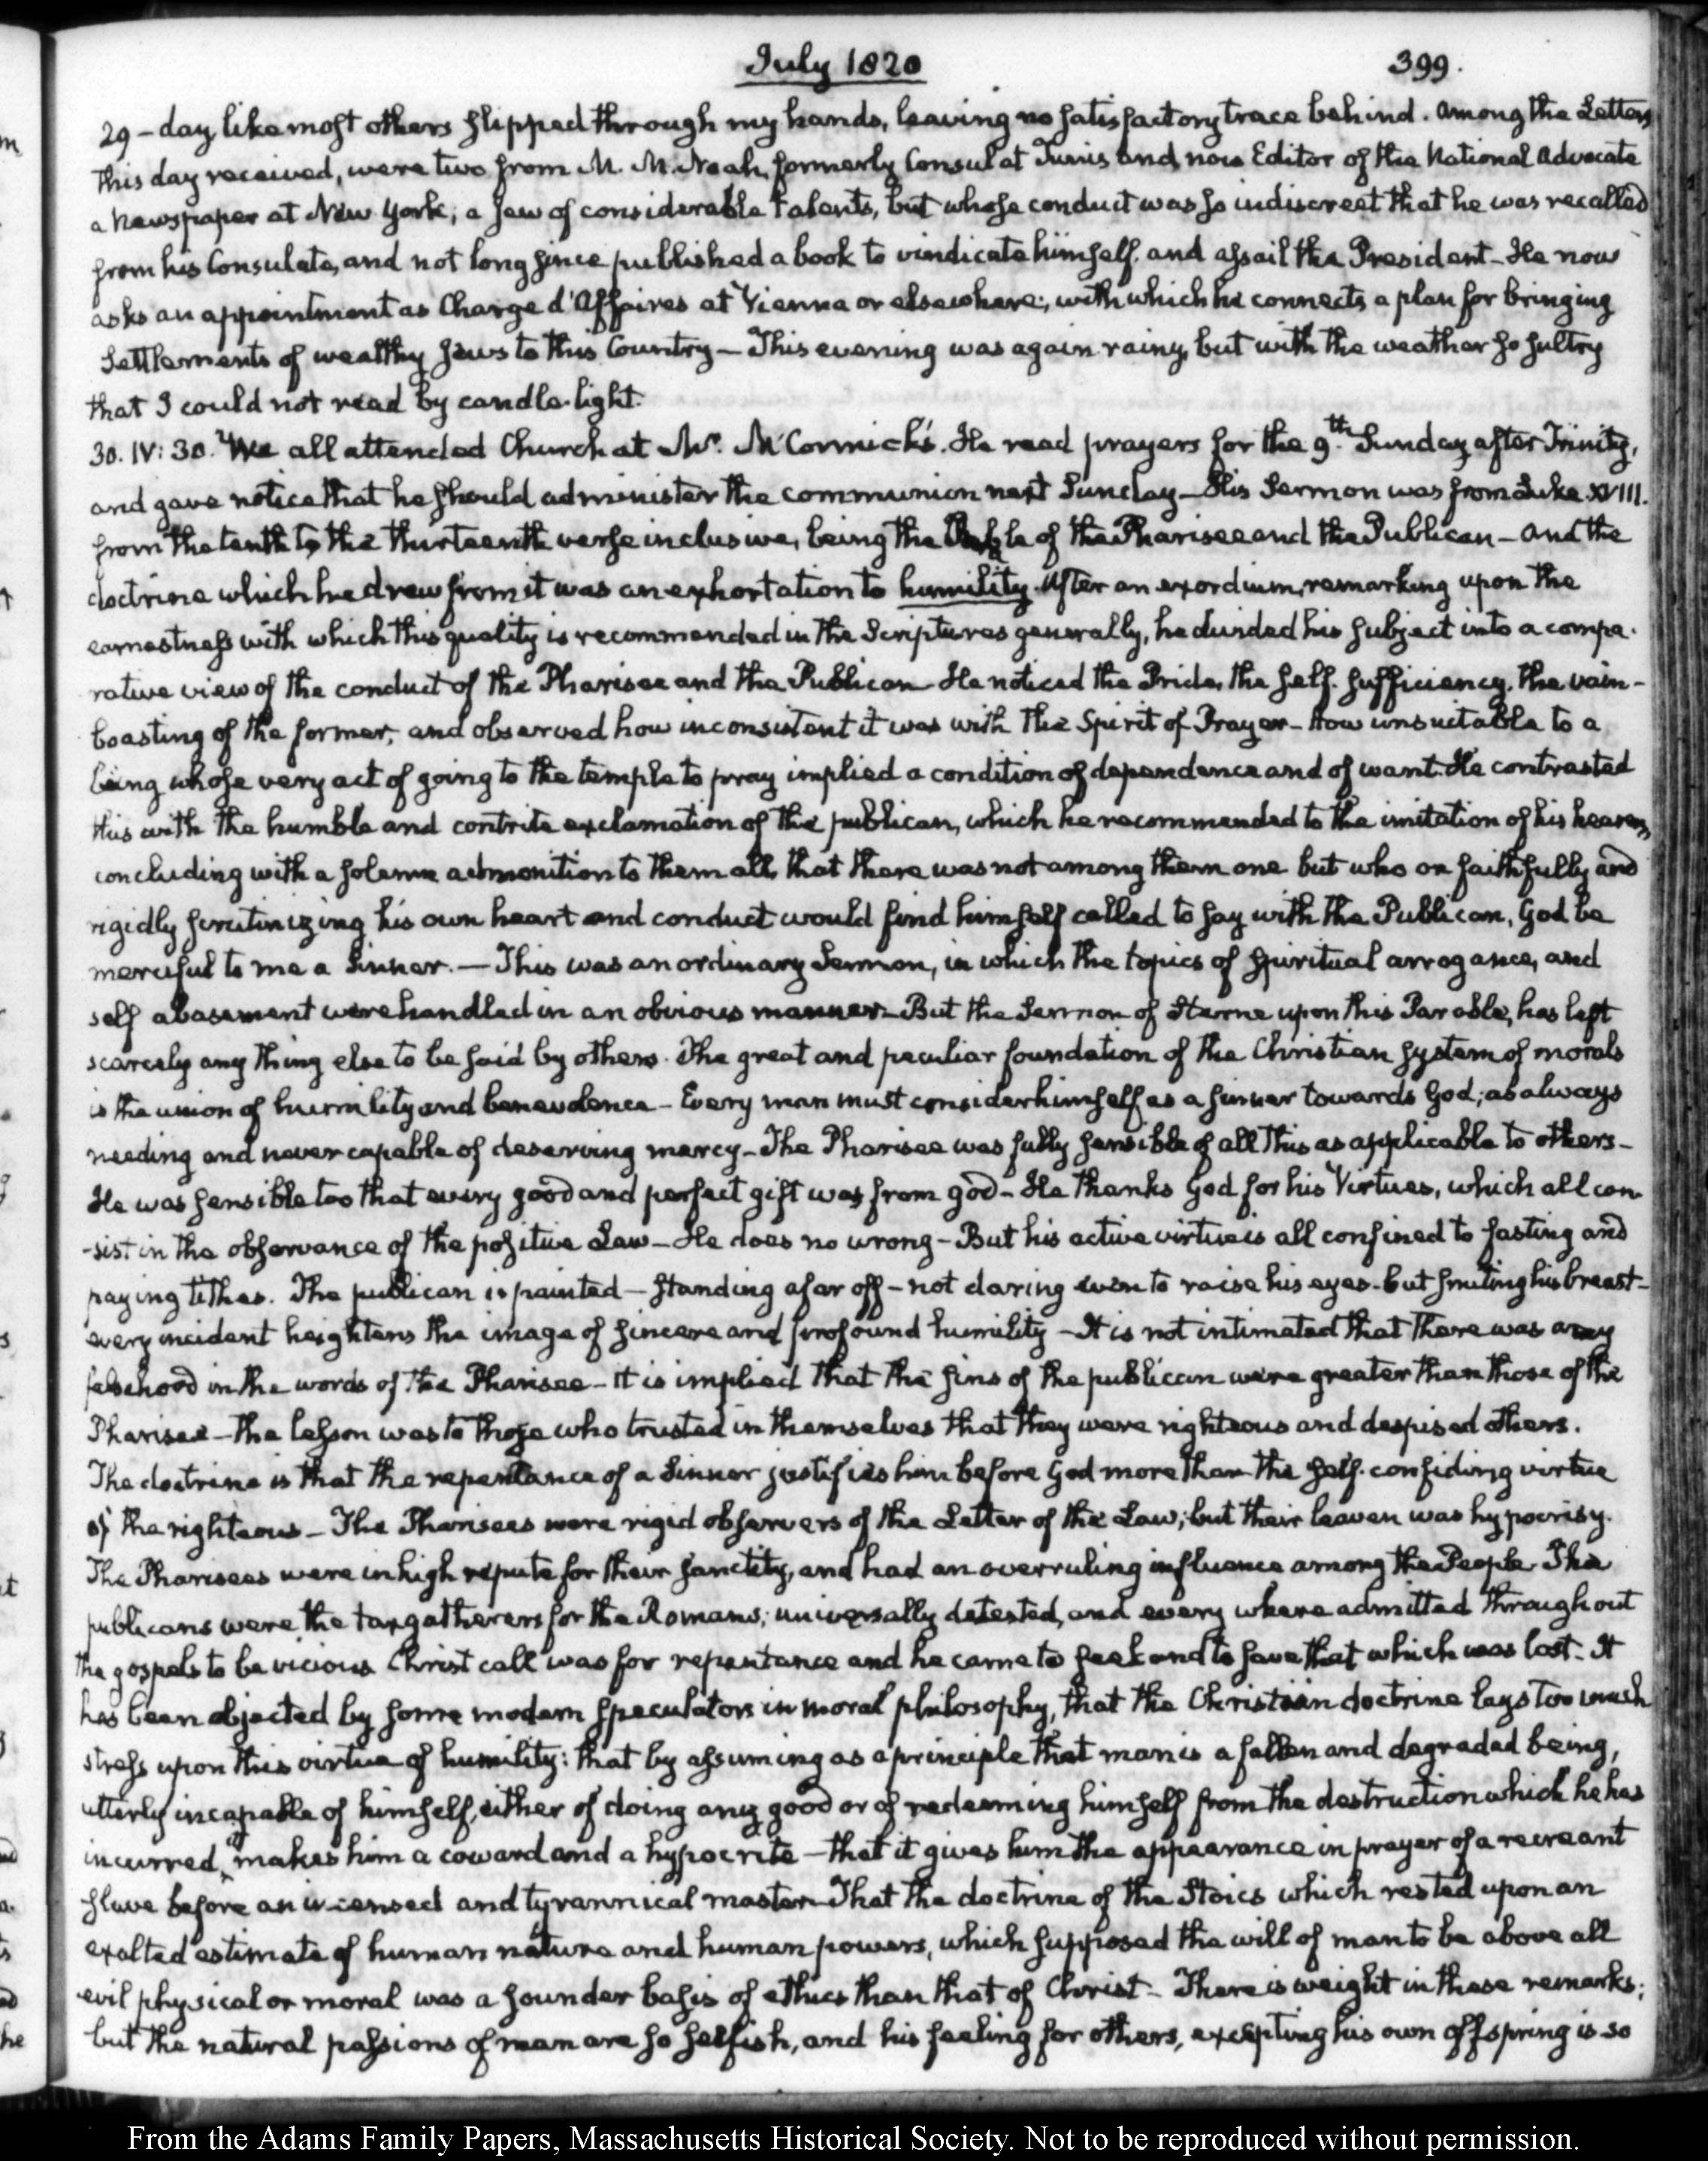 July 1820
399.
29 - day, like most others slipped through my hands, leaving no satisfactory trace behind. Among the Letters
this day received, were two from M. M. Noah, formerly Consul at Tunis and now Editor of the National Advocate
a Newspaper at New York; a Jew of considerable talents, but whose conduct was so indiscreet that he was recalled
from his Consulate, and not long since published a book to vindicate himself, and assail the President - He now
asks an appointment as Charge d'Affaires at Vienna or elsewhere; with which he connects a plan for bringing
Settlements of wealthy Jews to this Country - This evening was again rainy, but with the weather so sultry
that I could not read by candle-light.
30. IV: 30. We all attended Church at Mr. McCormick's. He read prayers for the 9th Sunday after Trinity,
and gave notice that he should administer the communion next Sunday - His Sermon was from Luke XVIII.
from the tenth to the thirteenth verse inclusive, being the of the Pharisee and the Publican - And the
doctrine which he drew from it was an exhortation to humility. After an exordium, remarking upon the
earnestness with which this quality is recommended in the Scriptures generally, he divided his subject into a compa-
rative view of the conduct of the Pharisee and the Publican - He noticed the Pride, the self-sufficiency, the vain-
boasting of the former; and observed how inconsistent it was with the Spirit of Prayer - How unsuitable to a
being whose very act of going to the temple to pray implied a condition of dependence and of want. He contrasted
this with the humble and contrite exclamation of the publican, which he recommended to the imitation of his hearers,
concluding with a solemn admonition to them all, that there was not among them one but who on faithfully and
rigidly scrutinizing his own heart and conduct would find himself called to say with the Publican, God be
merciful to me a Sinner. - This was an ordinary Sermon, in which the topics of spiritual arrogance, and
self abasement were handled in an obvious manner - But the Sermon of Sterne upon this Parable, has left
scarcely any thing else to be said by others. The great and peculiar foundation of the Christian system of morals
is the union of humility and benevolence - Every man must consider himself as a sinner towards God; as always
needing and never capable of deserving mercy - The Pharisee was fully sensible of all this as applicable to others -
He was sensible too that every good and perfect gift was from God - He thanks God for his Virtues, which all con-
-sist in the observance of the positive Law - He does no wrong - But his active virtue is all confined to fasting and
paying tithes. The publican is painted - standing afar off - not daring even to raise his eyes - but smiting his breast -
every incident heightens the image of sincere and profound humility - It is not intimated that there was any
falsehood in the words of the Pharisee - It is implied that the sins of the publican were greater than those of the
Pharisee - the lesson was to those who trusted in themselves that they were righteous and despised others.
The doctrine is that the repentance of a Sinner justifies him before God more than the self-confiding virtue
of the righteous - The Pharisees were rigid observers of the Letter of the Law; but their leaven was hypocrisy.
The Pharisees were in high repute for their sanctity, and had an overruling influence among the People. The
publicans were the taxgatherers for the Romans; universally detested, and every where admitted throughout
the gospels to be vicious. Christ call was for repentance and he came to seek and to save that which was lost - It
has been objected by some modern speculators in moral philosophy, that the Christian doctrine lays too much
stress upon this virtue of humility: that by assuming as a principle that man is a fallen and degraded being,
utterly incapable of himself, either of doing any good or of redeeming himself from the destruction which he has
incurred, it makes him a coward and a hypocrite - that it gives him the appearance in prayer of a recreant
slave before an incensed and tyrannical master - That the doctrine of the Stoics which rested upon an
exalted estimate of human nature and human powers, which supposed the will of man to be above all
evil physical or moral was a sounder basis of ethics than that of Christ - There is weight in these remarks;
but the natural passions of man are so selfish, and his feeling for others, excepting his own offspring is so
From the Adams Family Papers, Massachusetts Historical Society. Not to be reproduced without permission.